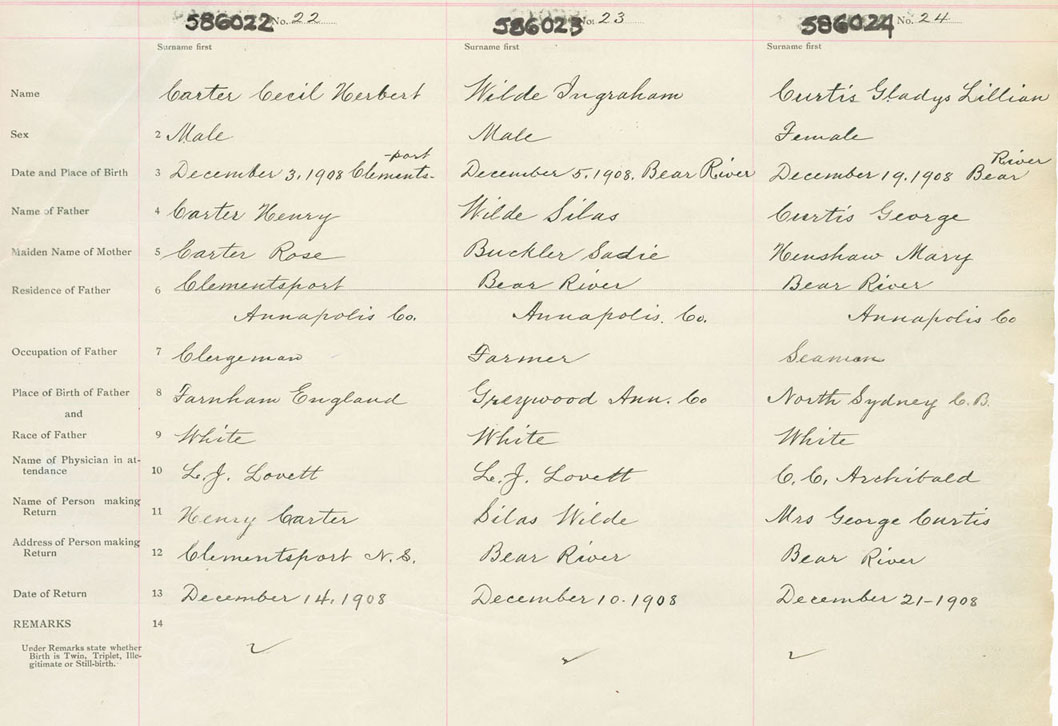 586022 No. 22 586023 No. 23 586024 No. 24
Surname first Surname first Surname first
Name Carter Cecil Herbert Wilde Ingraham Curtis Gladys Lillian
Sex 2 Male Male Female
port River
Date and Place of Birth 3 December 3, 1908 Clements- December 5, 1908, Bear River December 19, 1908 Bear
Name of Father 4 Carter Henry Wilde Silas Curtis George
Maiden Name of Mother 5 Carter Rose Buckler Sadie Henshaw Mary
Residence of Father 6 Clementsport Bear River Bear River
Annapolis Co. Annapolis. Co. Annapolis Co
Occupation of Father 7 Clergeman Farmer Seaman
Place of Birth of Father 8 Farnham England Greywood Ann. Co North Sydney C.B.
and
Race of Father 9 White White White
Name of Physician in at-
tendance 10 L. J. Lovett L. J. Lovett C. C. Archibald
Name of Person making
Return 11 Henry Carter Silas Wilde Mrs George Curtis
Address of Person making
Return 12 Clementsport N.S. Bear River Bear River
Date of Return 13 December 14, 1908 December 10. 1908 December 21-1908
REMARKS 14
Under Remarks state whether
Birth is Twin, Triplet, Ille-
gitimate or Still-birth.